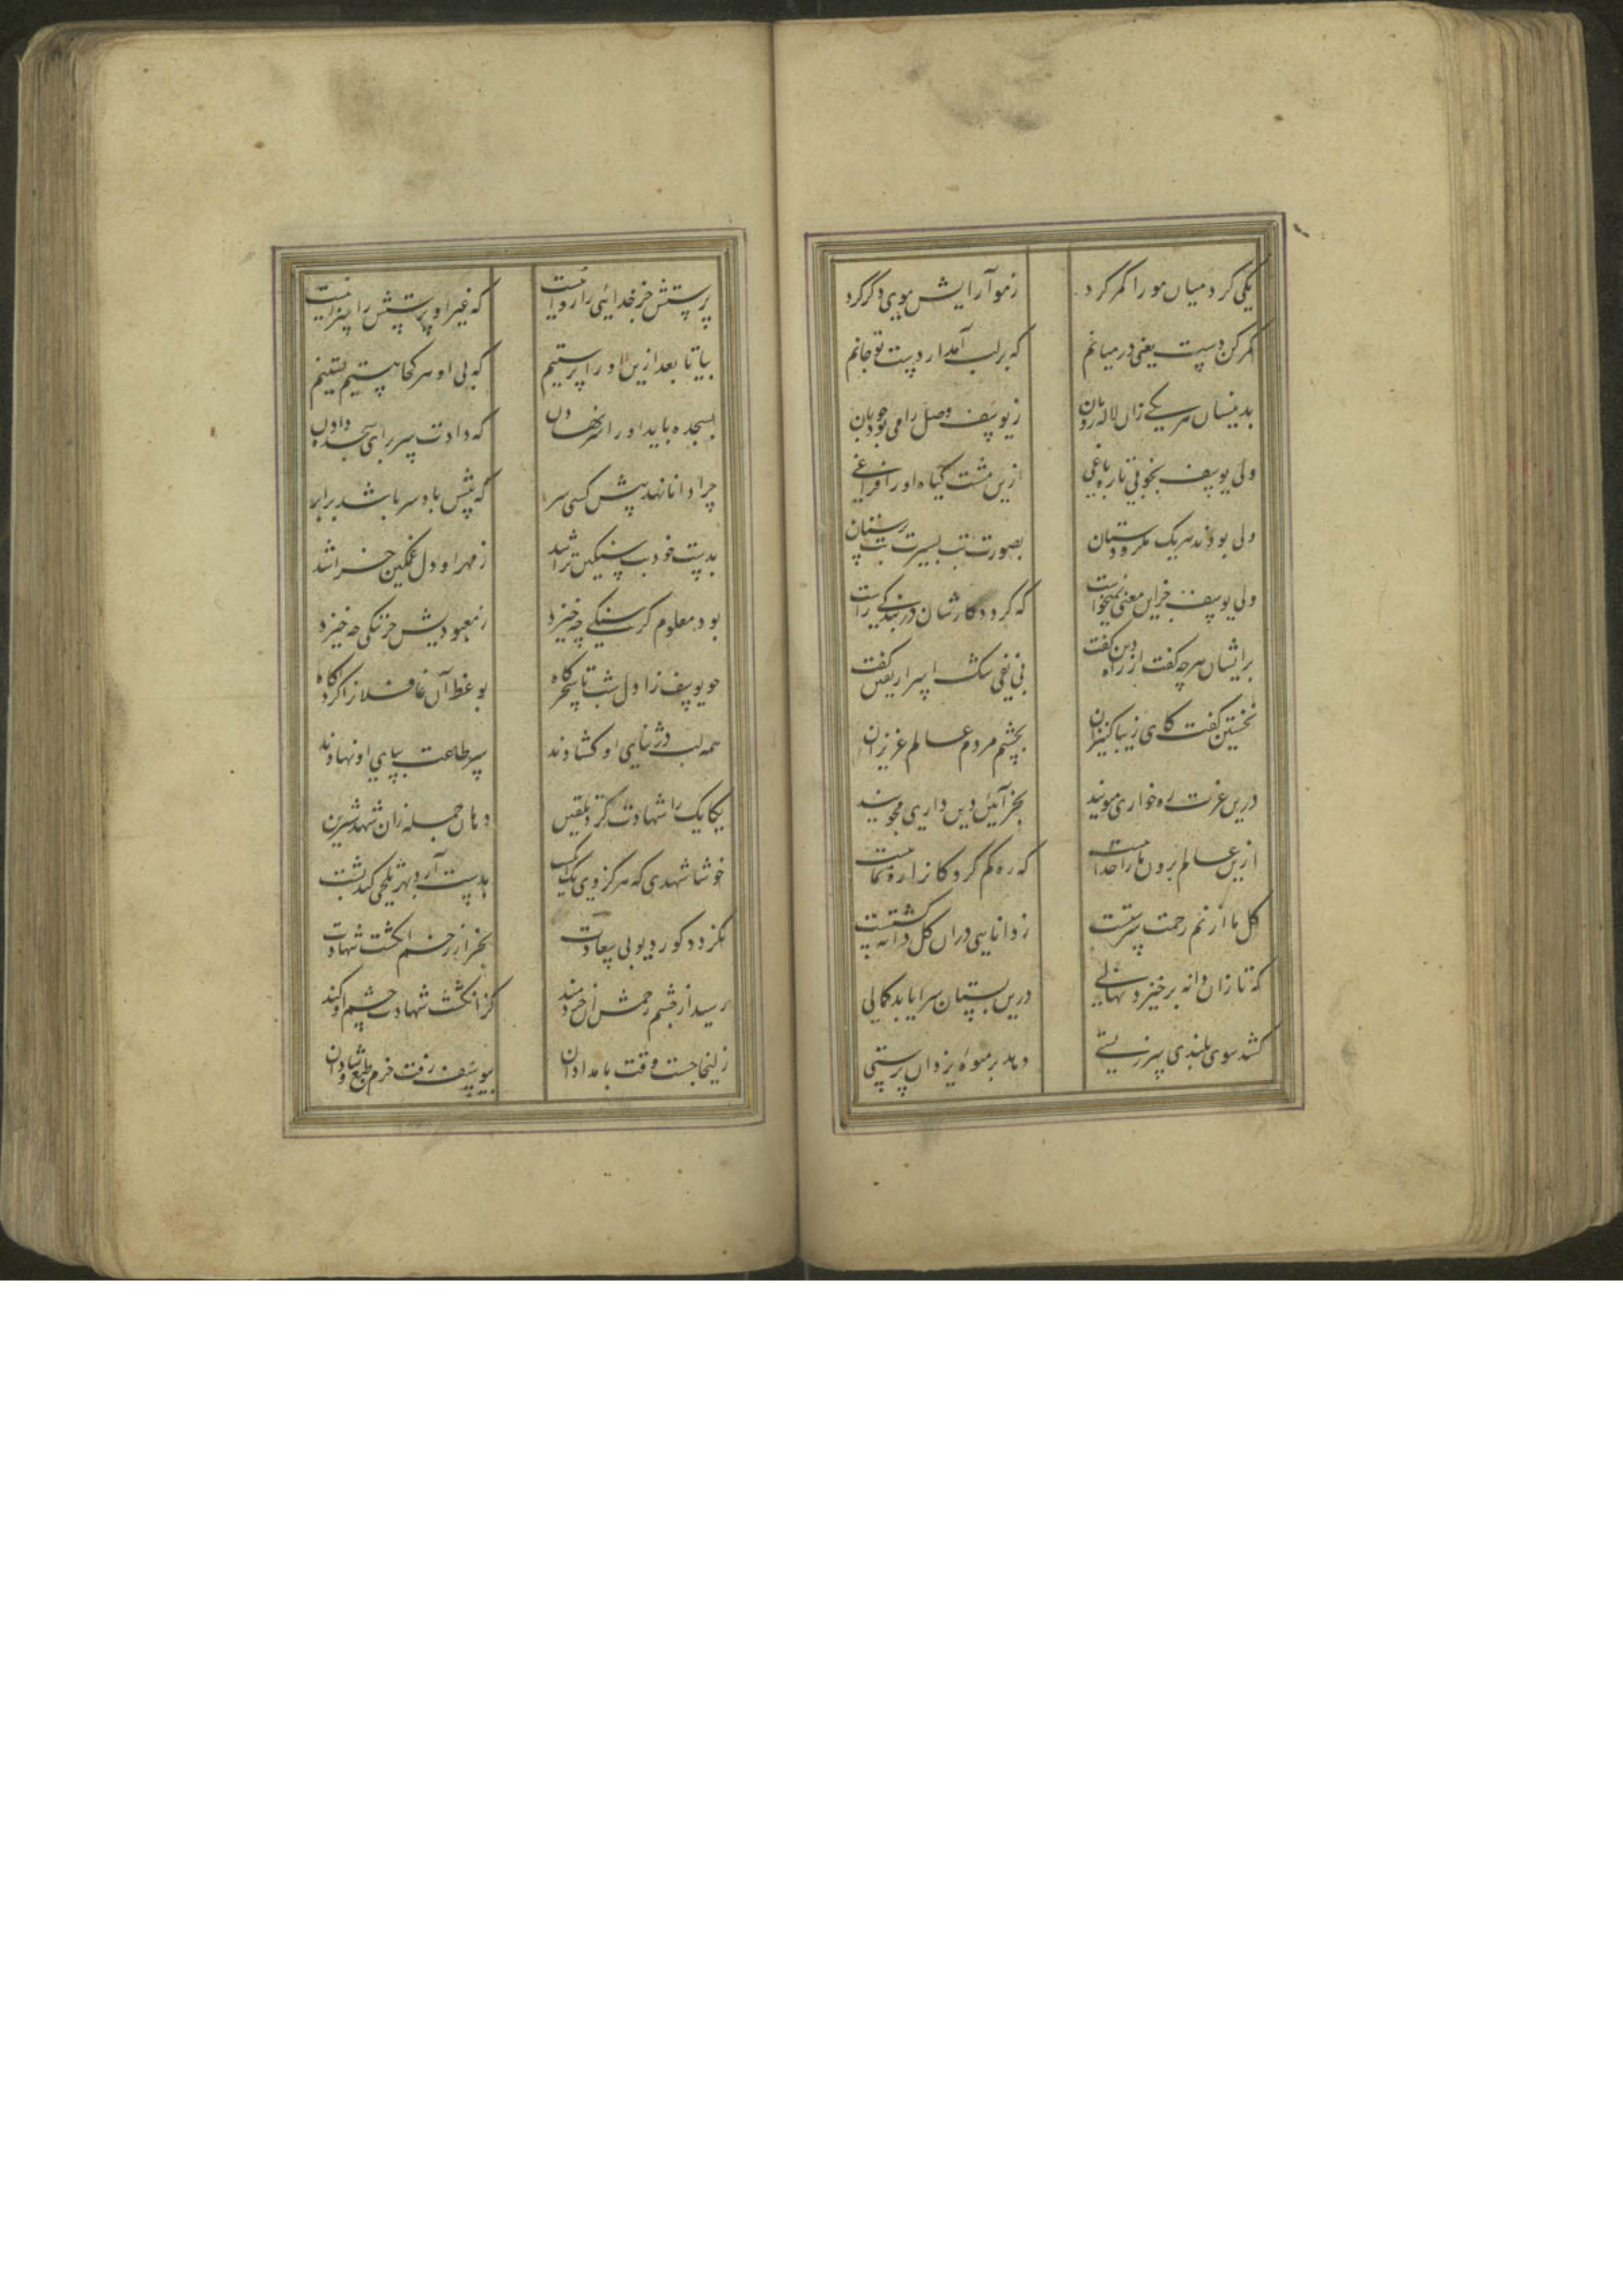 یکی کرد میان مو را کمر کرد
ز مو آرایش موی دگر کرد
کمر کن دست یعنی در میانم
که بر لب آمد از دست تو جانم
بدینسان هر یکی زان لاله رویان
ز یوسف وصل را می بود جویان
ولی یوسف بخوبی تازه باغی
ازین مشت گیاه او را فراغی
ولی بودند هر یک مکر و دستان
بصورت بت بسیرت بت پرستان
ولی یوسف جز این معنی نمیخواست
که گردد کارشان در بندگی راست
بر ایشان هرچه گفت از راه دین گفت
پی نفی شک اسرار یقین گفت
نخستین گفت کای زیبا کنیزان
بچشم مردم عالم عزیزان
درین عزت ره خواری مپویید
بجز آئین دین داری مجویید
ازین عالم برون ما را خداییست
که ره گم کردکانرا ره نماست
گل ما از نم رحمت سرشتست
ز دانایی در آن گل دانه کشتست
که تا زان دانه برخیزد نهالی
درین بستان سرا یابد کمالی
کشد سوی بلندی سر ز پستی
دهد بر میوه یزدان پرستی
پرستش جز خدایی را روا نیست
که غیر او پرستش را سزا نیست
بیا تا بعد ازین او را پرستیم
که بی او هر کجا هستیم پستیم
بسجده باید او را سر نهادن
که دادت سر برای سجده دادن
چرا دانا نهد پیش کسی سر
که پیش باد سر باشد برابر
بدست خود بت سنگین تراشد
ز مهر او دل غمگین خراشد
بود معلوم کز سنگی چه خیزد
ز معبودیش جز ننگی چه خیزد
چو یوسف ز اول شب تا سحرگاه
بوعظ آن غافلانرا کرد آگاه
همه لب در ثنای او گشادند
سر طاعت بپای او نهادند
یکایک را شهادت کرد تلقین
دهان جمله زان شهد شیرین
خوشا شهدی که هرگز وی یک انگشت
بدست آرد بهر تلخی کند پشت
نگردد کور دیو بی سعادت
بجز از زخم انگشت شهادت
رسید از چشم زخمش آن خردمند
کز انگشت شهادت چشم او کند
زلیخا جست وقت بامدادان
بیوسف رفت خرم طبع و شادان